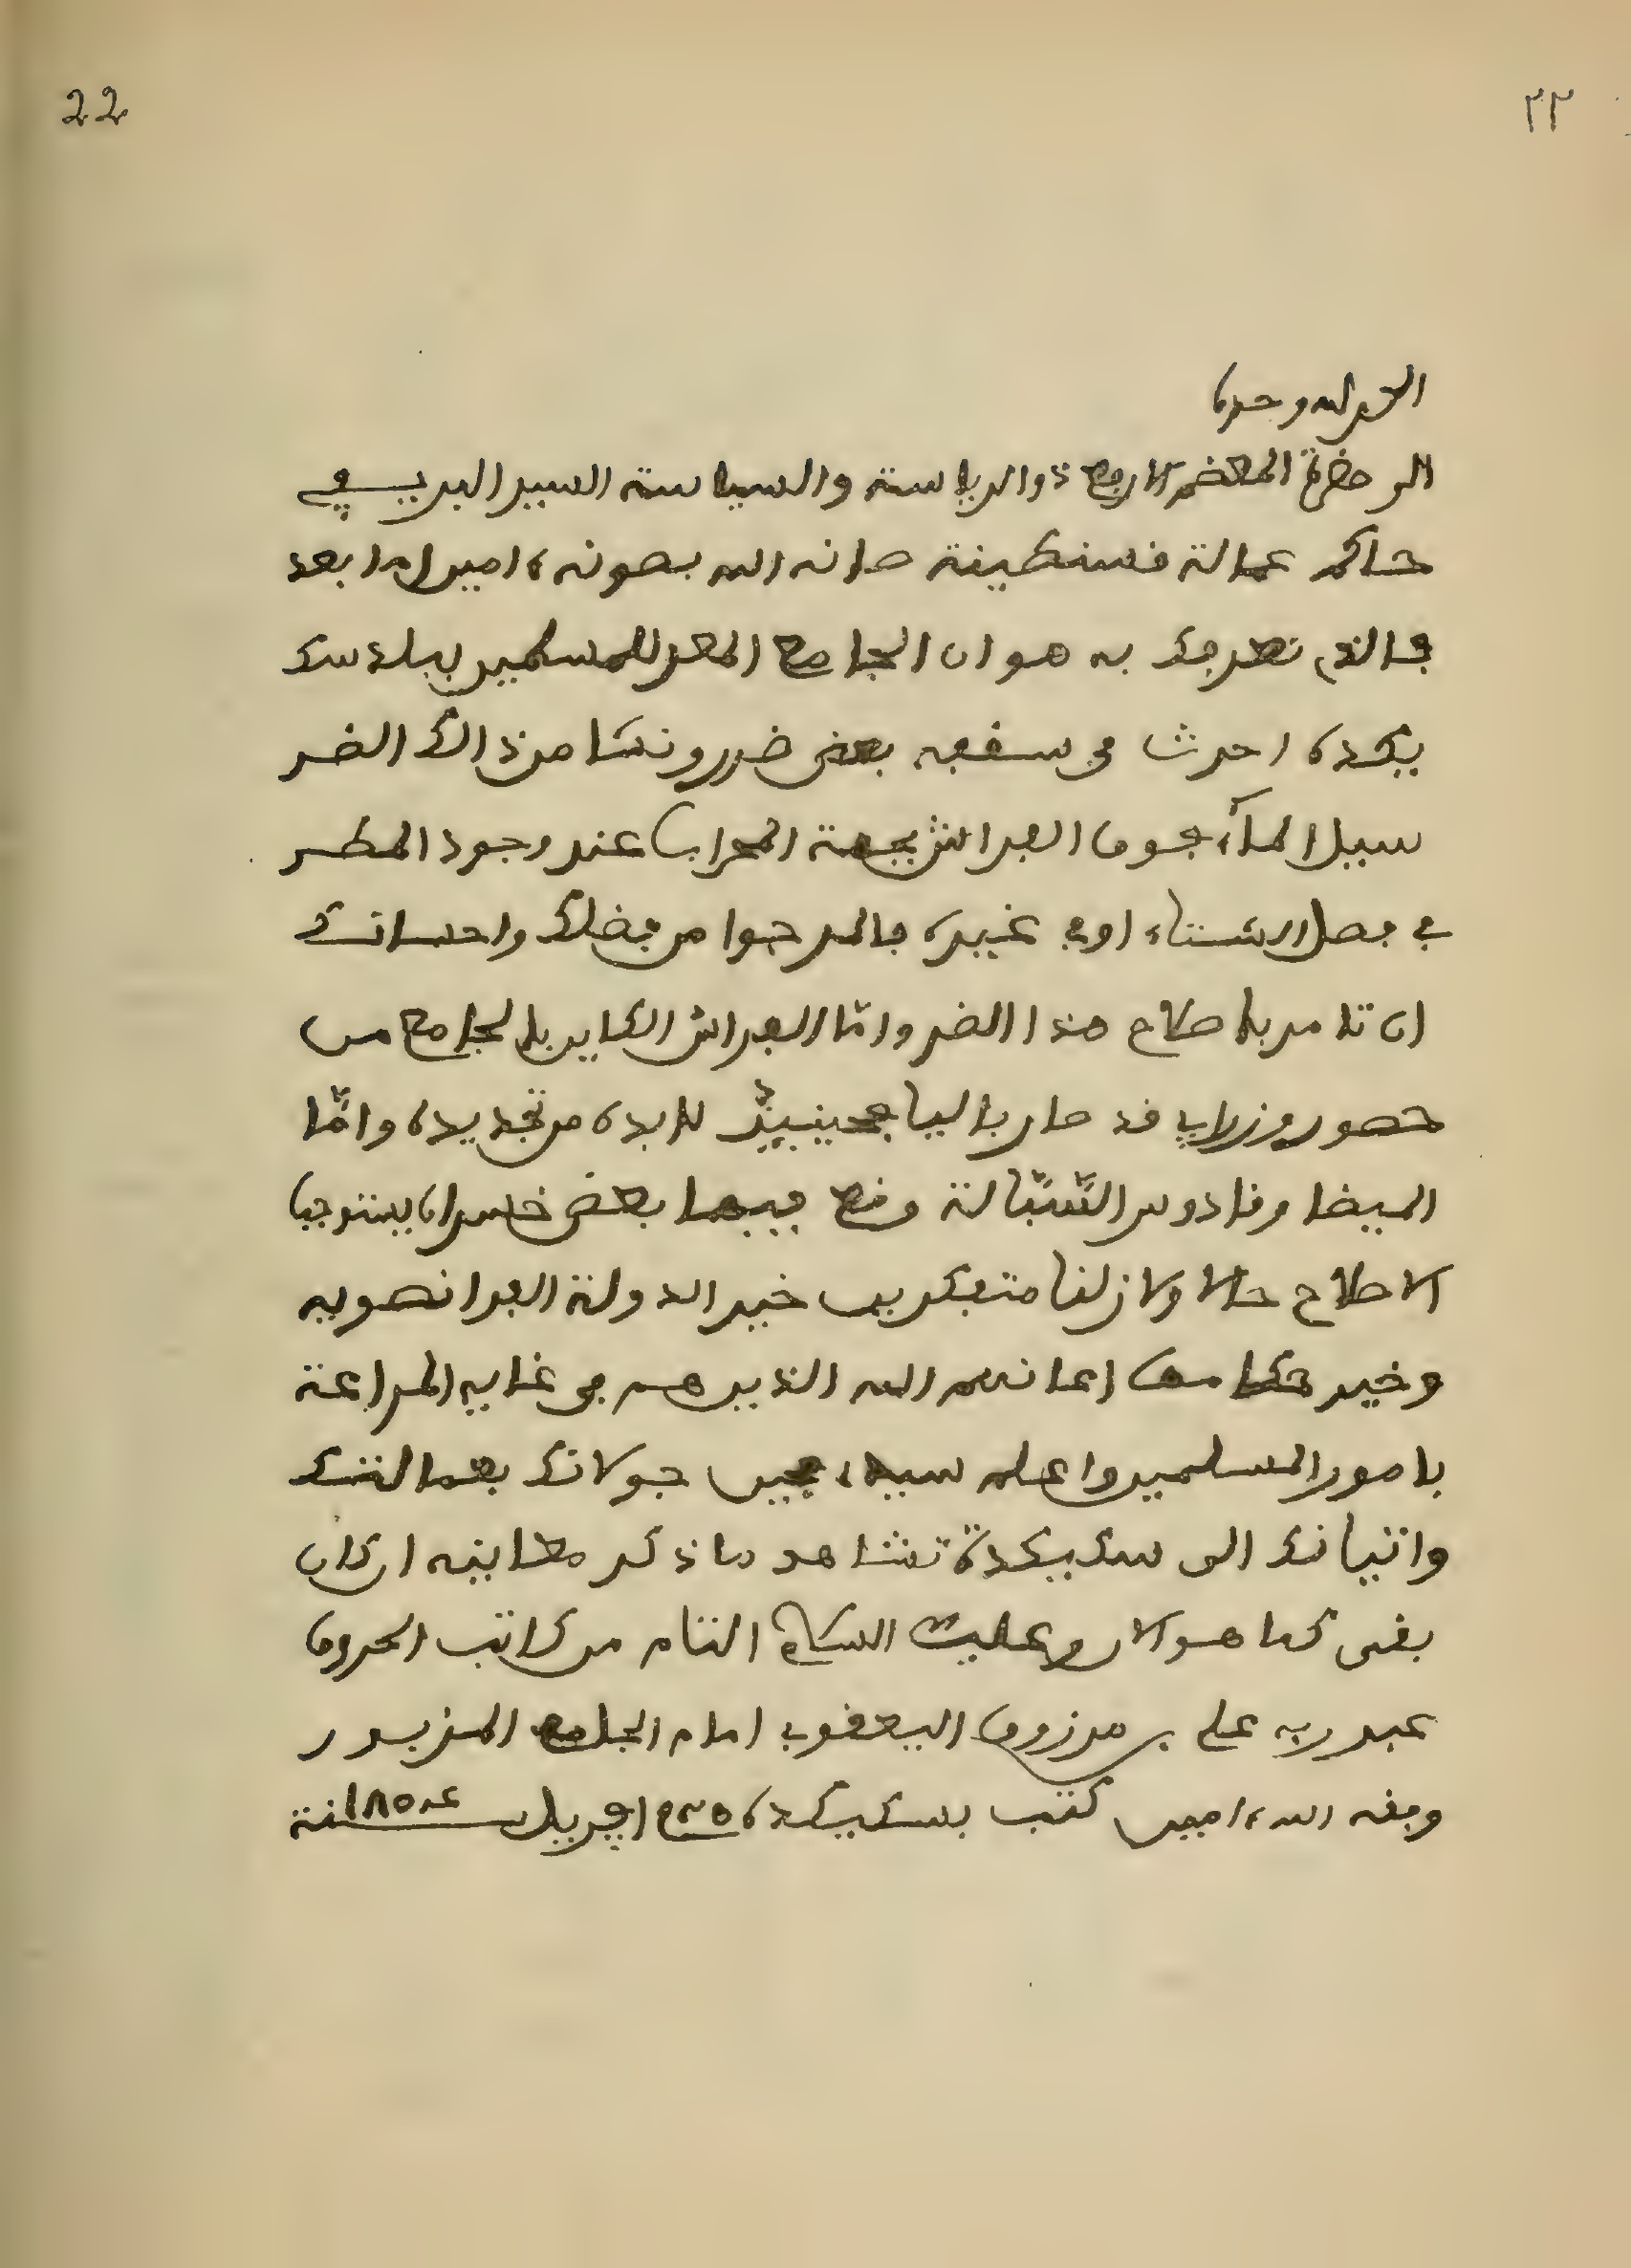 22
٢٢
الحمد لله وحده
الى حضرة المعضم الارفع ذو الرياسة والسياسة السيد البريفي
حاكم عمالة قسنطينة صانه الله بصونه ءامين اما بعد
فالذي نعرفك به هو ان الجامع المعد للمسلمين ببلاد سك
يكده احدث في سقفه بعض ضرر ونشا من ذالك الضر
سيل الماء فوق الفراش بجهة المحراب عند وجود المطر
في فصل الشتاء او في غيره فالمرجوا من فضلك واحسانك
ان تامر باصلاح هذا الضر وامّا الفراش الكاين بالجامع من
حصور وزرابي قد صار باليا لابده من تجديده وامّا
الميضا وقادوس التشّبالة وقع فيهما بعض خسران يستوجب
الاصلاح حالا ولا زلنا متفكرين خير الدولة الفرانصويه
وخير حكامها اعانهم الله الذين هم في غايه المراعة
بامور المسلمين واعلم سيدي حين جولانك بعمالتك
واتيانك الى سكيكدة تشاهد ما ذكر معاينه ان كان
بقى كما هو الان وعليك السلام التام من كاتب الحروف
عبد ربه علي بن مرزوق اليعقوبي امام الجامع المزبور
وفقه الله ءامين كتب بسكيكده افريل سنة